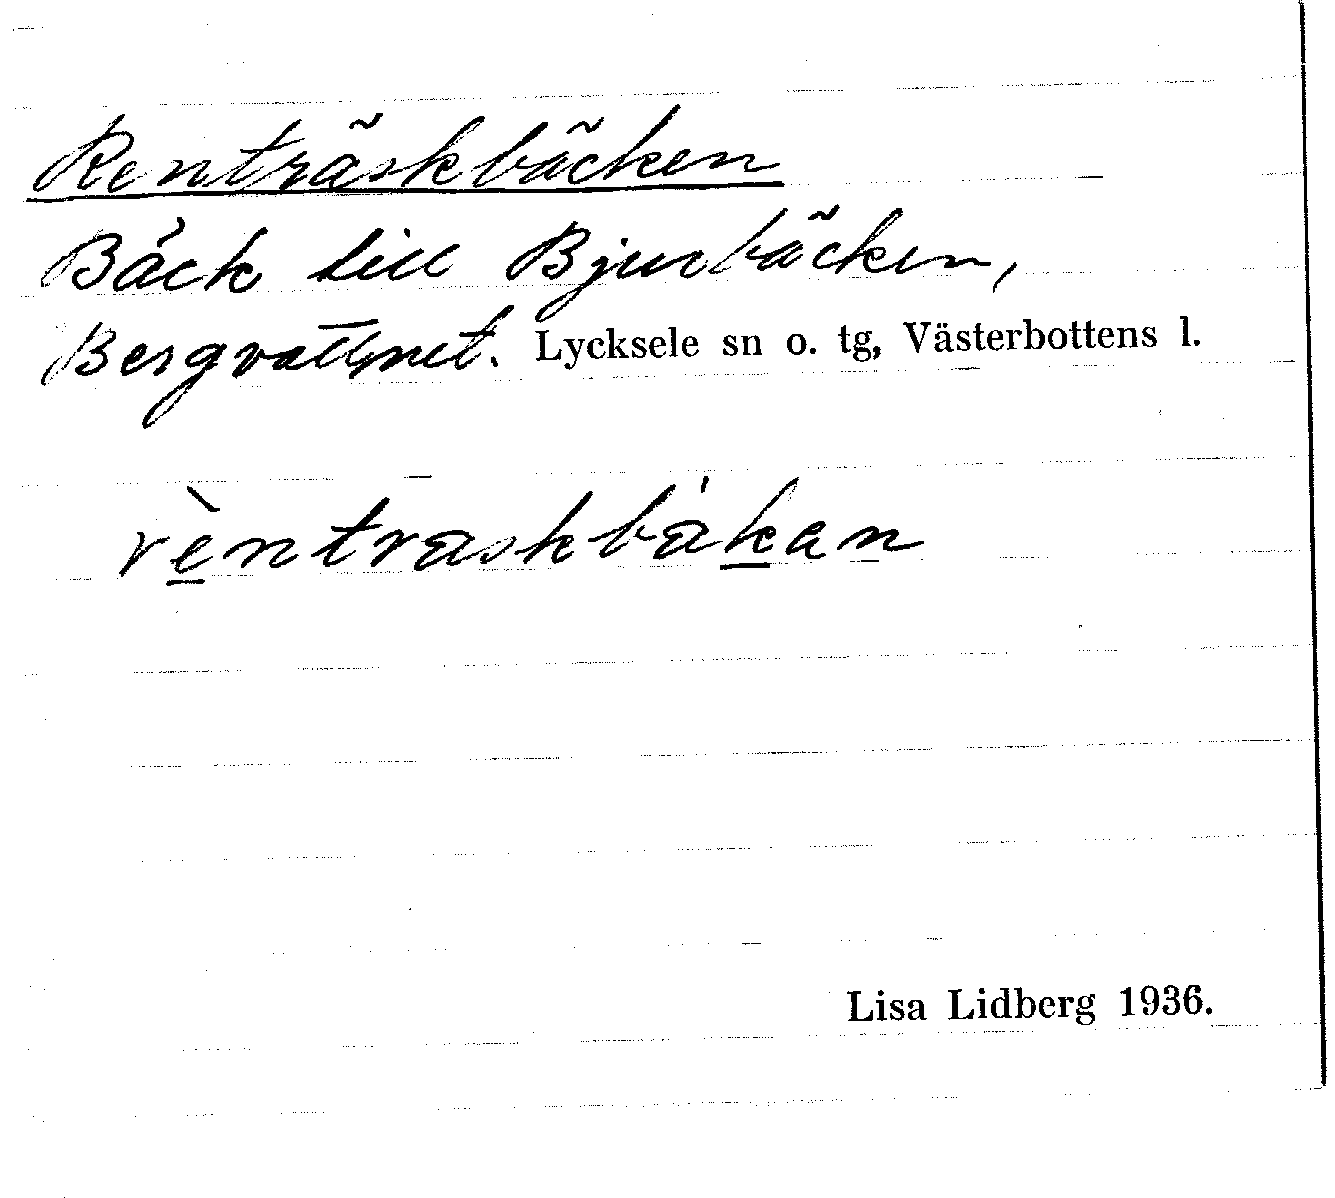 Renträskbäcken
Bäck till Bjurbäcken,
Bergvattnet. Lycksele sn o. tg, Västerbottens l.
rèntraskbákan
Lisa Lidberg 1936.